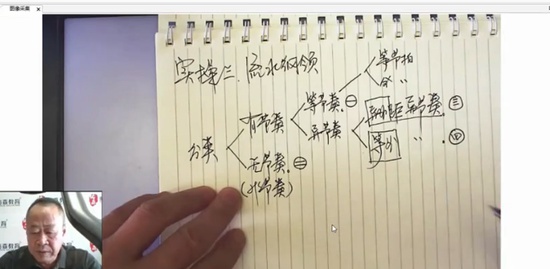 图像采集
实操三. 流水纲领
等节拍
等节奏 ㊀
有节奏
异节奏
异步距异节奏 ㊂
分类
等步 〃 ㊃
无节奏 ㊁
(非节奏)